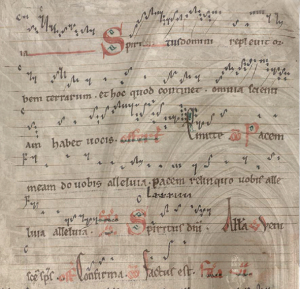 ia Spiritus domini replevit or
bem terrarum. et hoc quod continet. omnia scienti
am habet vocis. pacem
meam do vobis alleluia. pacem relinquo vobis alle
luia alleluia. Spiritus dni. Alla Veni
sce sps Confirma Factus est.